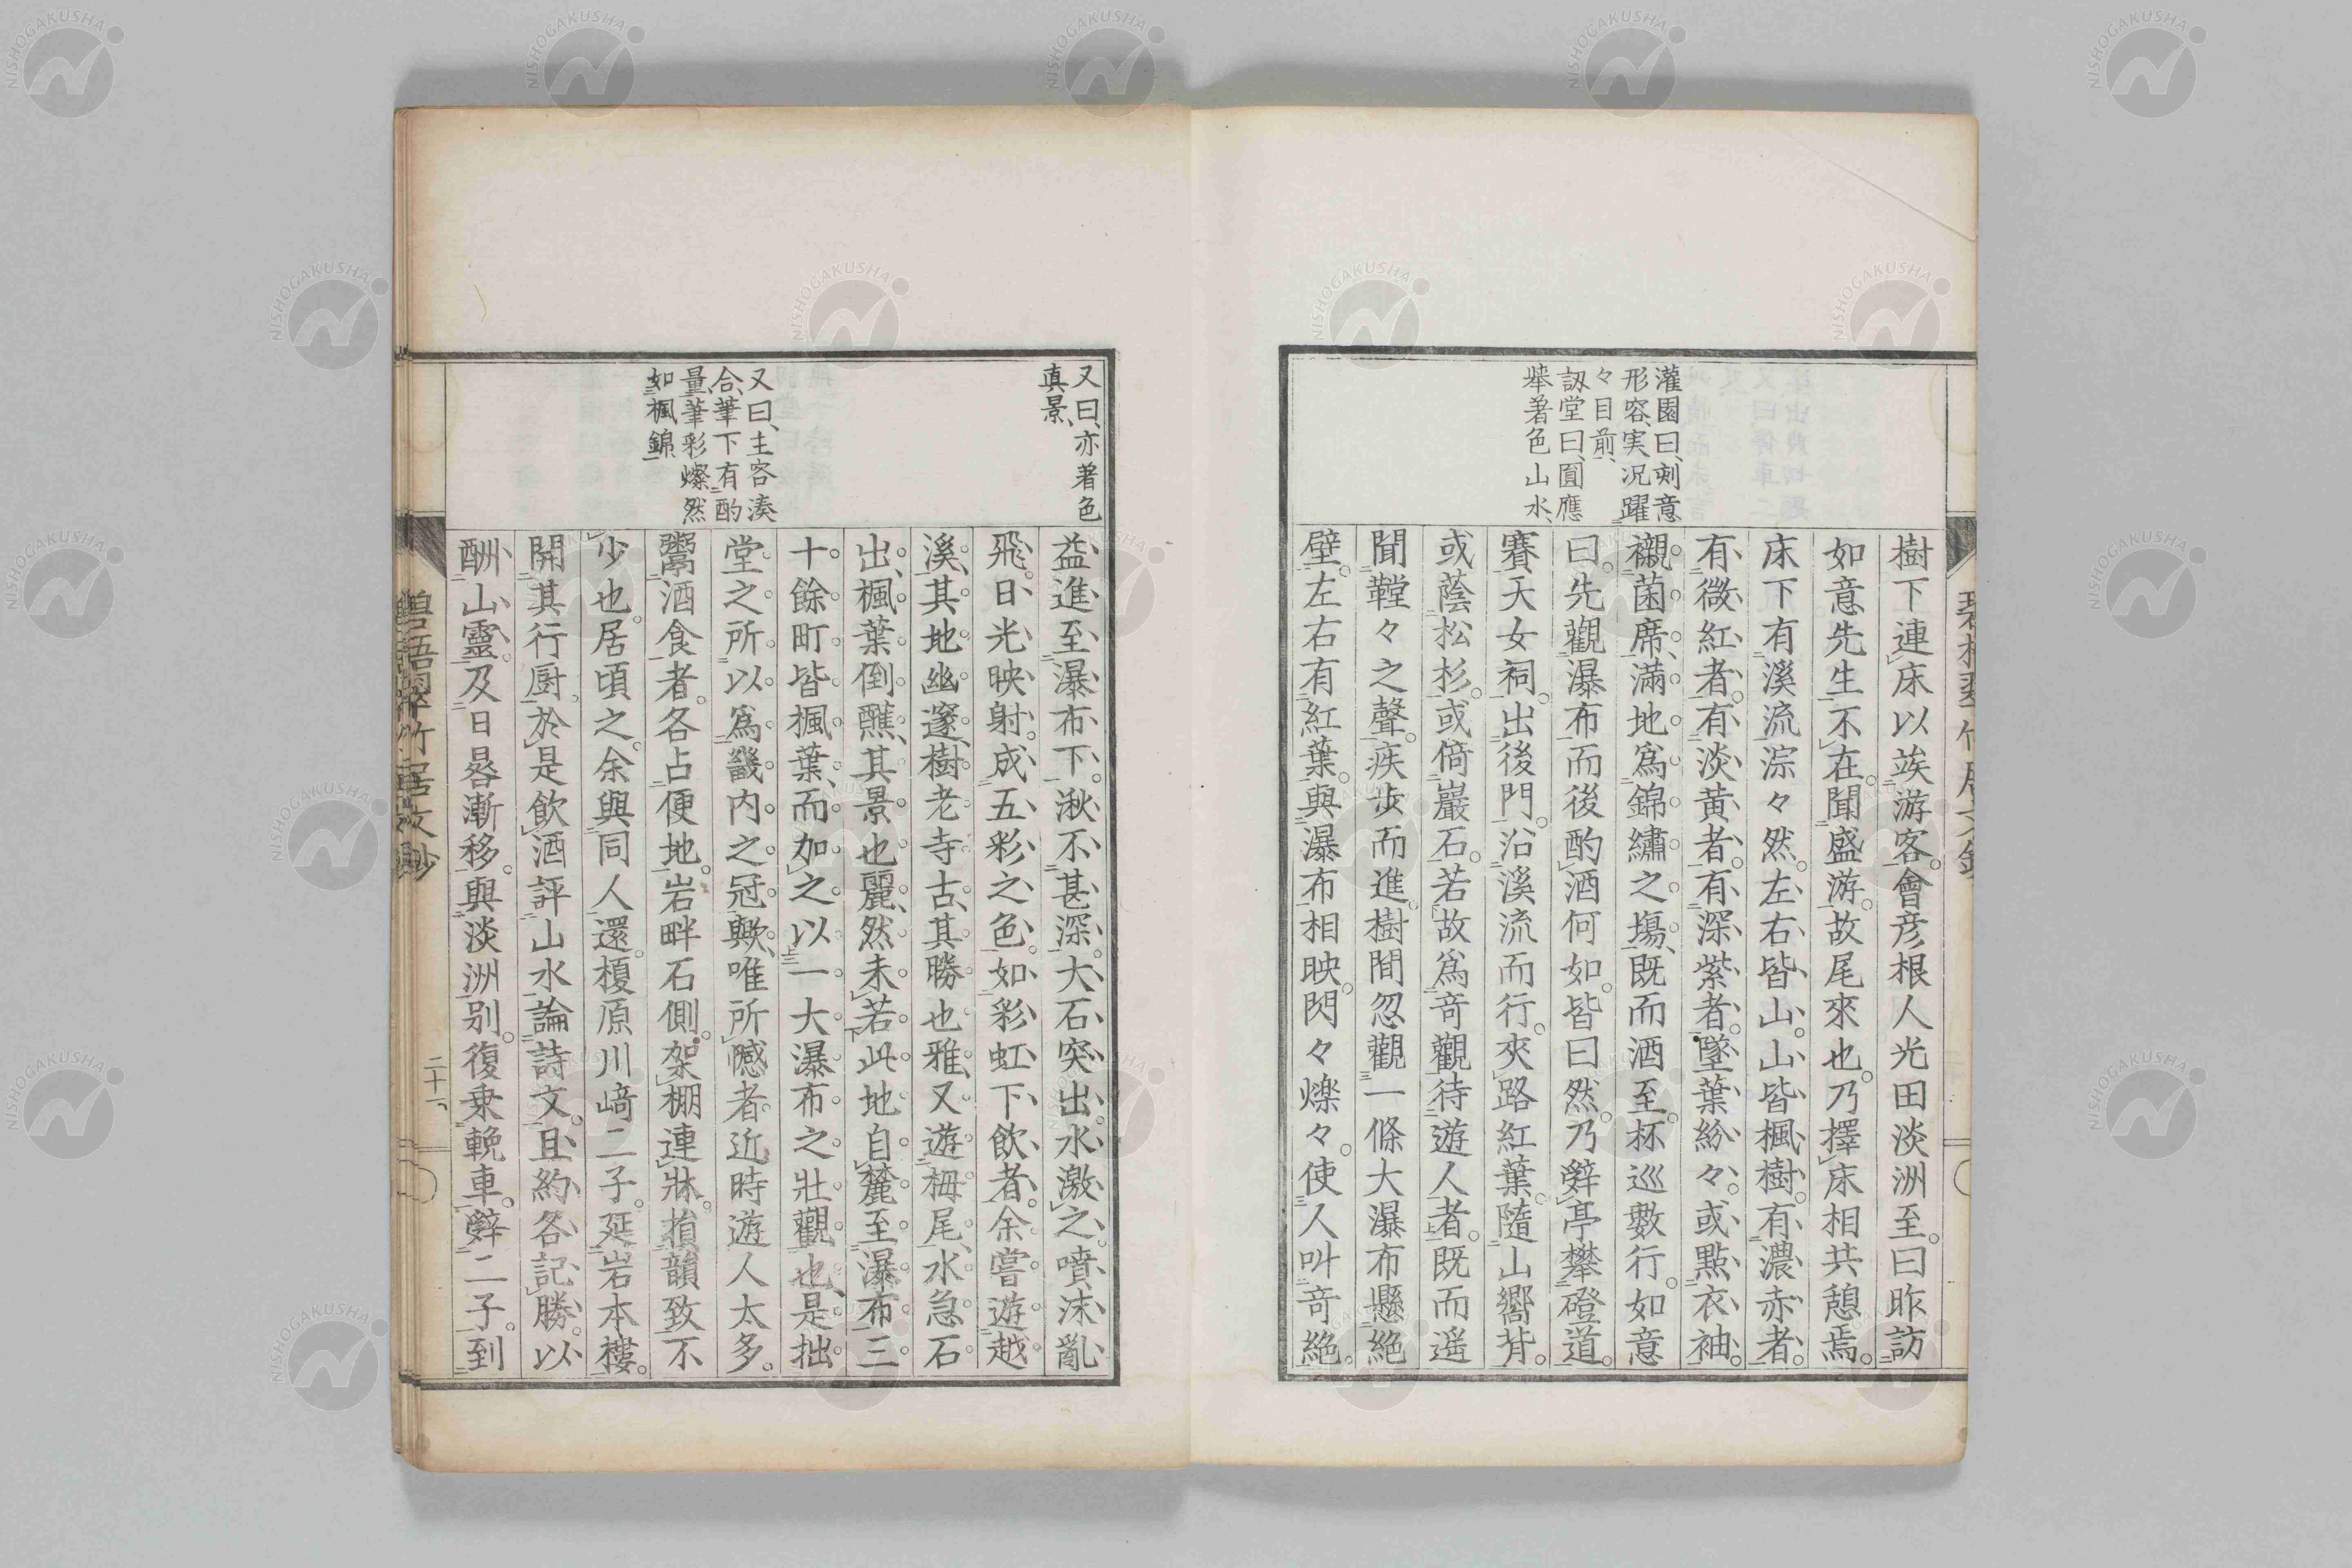 灌園曰、刻意
形容、実况躍
々目前、
訒堂曰、圓應
擧著色山水、
樹下連床以竢游客。會彦根人光田淡洲至。曰昨訪
如意先生不在。聞盛游。故尾來也。乃擇床相共憩焉。
床下有溪流淙々然。左右皆山。山皆楓樹。有濃赤者。
有微紅者。有淡黄者。有深紫者。墜葉紛々。或點衣袖。
襯菌席、滿地爲錦繡之塲、既而酒至。杯巡數行。如意
曰。先觀瀑布而後酌酒何如。皆曰然。乃辭亭攀磴道。
賽天女祠。出後門。沿溪流而行。夾路紅葉。隨山嚮背。
或蔭松杉。或倚巖石。若故爲奇觀待遊人者。既而遥
聞鞺々之聲。疾步而進。樹間忽觀一條大瀑布懸絶
壁。左右有紅葉。與瀑布相映。閃々爍々。使人叫奇絶。
又曰、亦著色
真景、
又曰、主客湊
合、筆下有酌
量、筆彩燦然
如楓錦、
益進至瀑布下。湫不甚深。大石突出。水激之。噴沫亂
飛。日光映射。成五彩之色。如彩虹下飲者。余嘗遊越
溪、其地幽邃、樹老寺古、其勝也雅、又遊栂尾、水急石
出、楓葉倒蘸、其景也麗、然未若此地自麓至瀑布三
十餘町皆楓葉、而加之以一大瀑布之壯觀也、是拙
堂之所以爲畿内之冠歟、唯所憾者近時遊人太多。
鬻酒食者。各占便地。岩畔石側。架棚連牀。損韻致不
少也。居頃之。余與同人還。榎原川﨑二子。延岩本樓。
開其行厨。於是飲酒評山水論詩文。且約各記勝。以
酬山靈。及日晷漸移。與淡洲別。復乗輓車。辭二子。到
竹居文鈔
二十一